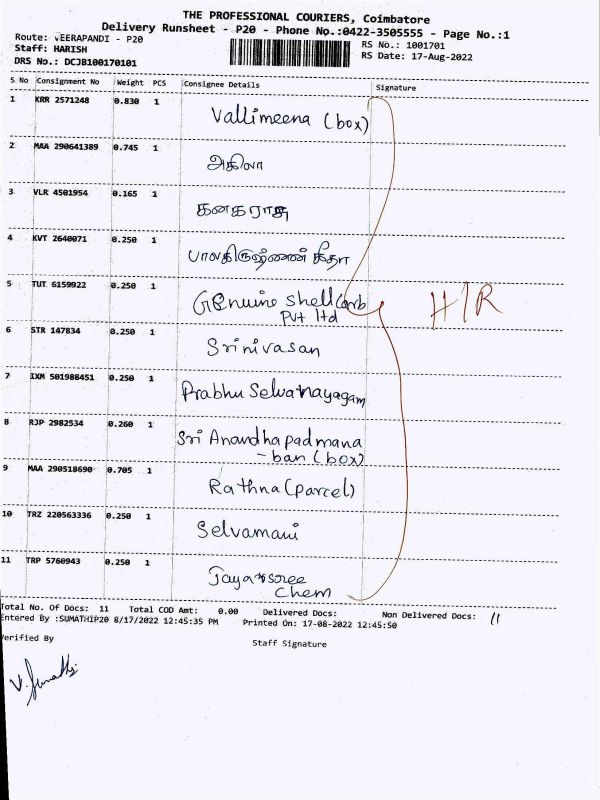 THE PROFESSIONAL COURIERS, Coimbatore
Delivery Runsheet - P20 - Phone No.:0422-3505555 - Page No.:1
Route: VEERAPANDI - P20
RS No.: 1001701
Staff: HARISH
RS Date: 17-Aug-2022
DRS No.: DCJB100170101
S No Consignment No Weight PCS Consignee Details Signature
1 KRR 2571248 0.830 1 Vallimeena (box)
2 MAA 290641389 0.745 1 அகிலா
3 VLR 4501954 0.165 1 கனகராஜ்
4 KVT 2640071 0.250 1 பாலகிருஷ்ணன் கீதா
5 TUT 6159922 0.250 1 GEnuine Shell Carb
Pvt ltd
H/R
6 STR 147834 0.250 1 Srinivasan
7 IXM 501988451 0.250 1 Prabhu Selvanayagam
8 RJP 2982534 0.260 1 Sri Anandhapadmana
-ban (box)
9 MAA 290518690 0.705 1 Rathna (parcel)
10 TRZ 220563336 0.250 1 Selvamani
11 TRP 5760943 0.250 1 Jayasree
Chem
Total No. Of Docs: 11 Total COD Amt: 0.00 Delivered Docs: Non Delivered Docs: 11
Entered By :SUMATHIP20 8/17/2022 12:45:35 PM Printed On: 17-08-2022 12:45:50
Verified By Staff Signature
V. Sumathi